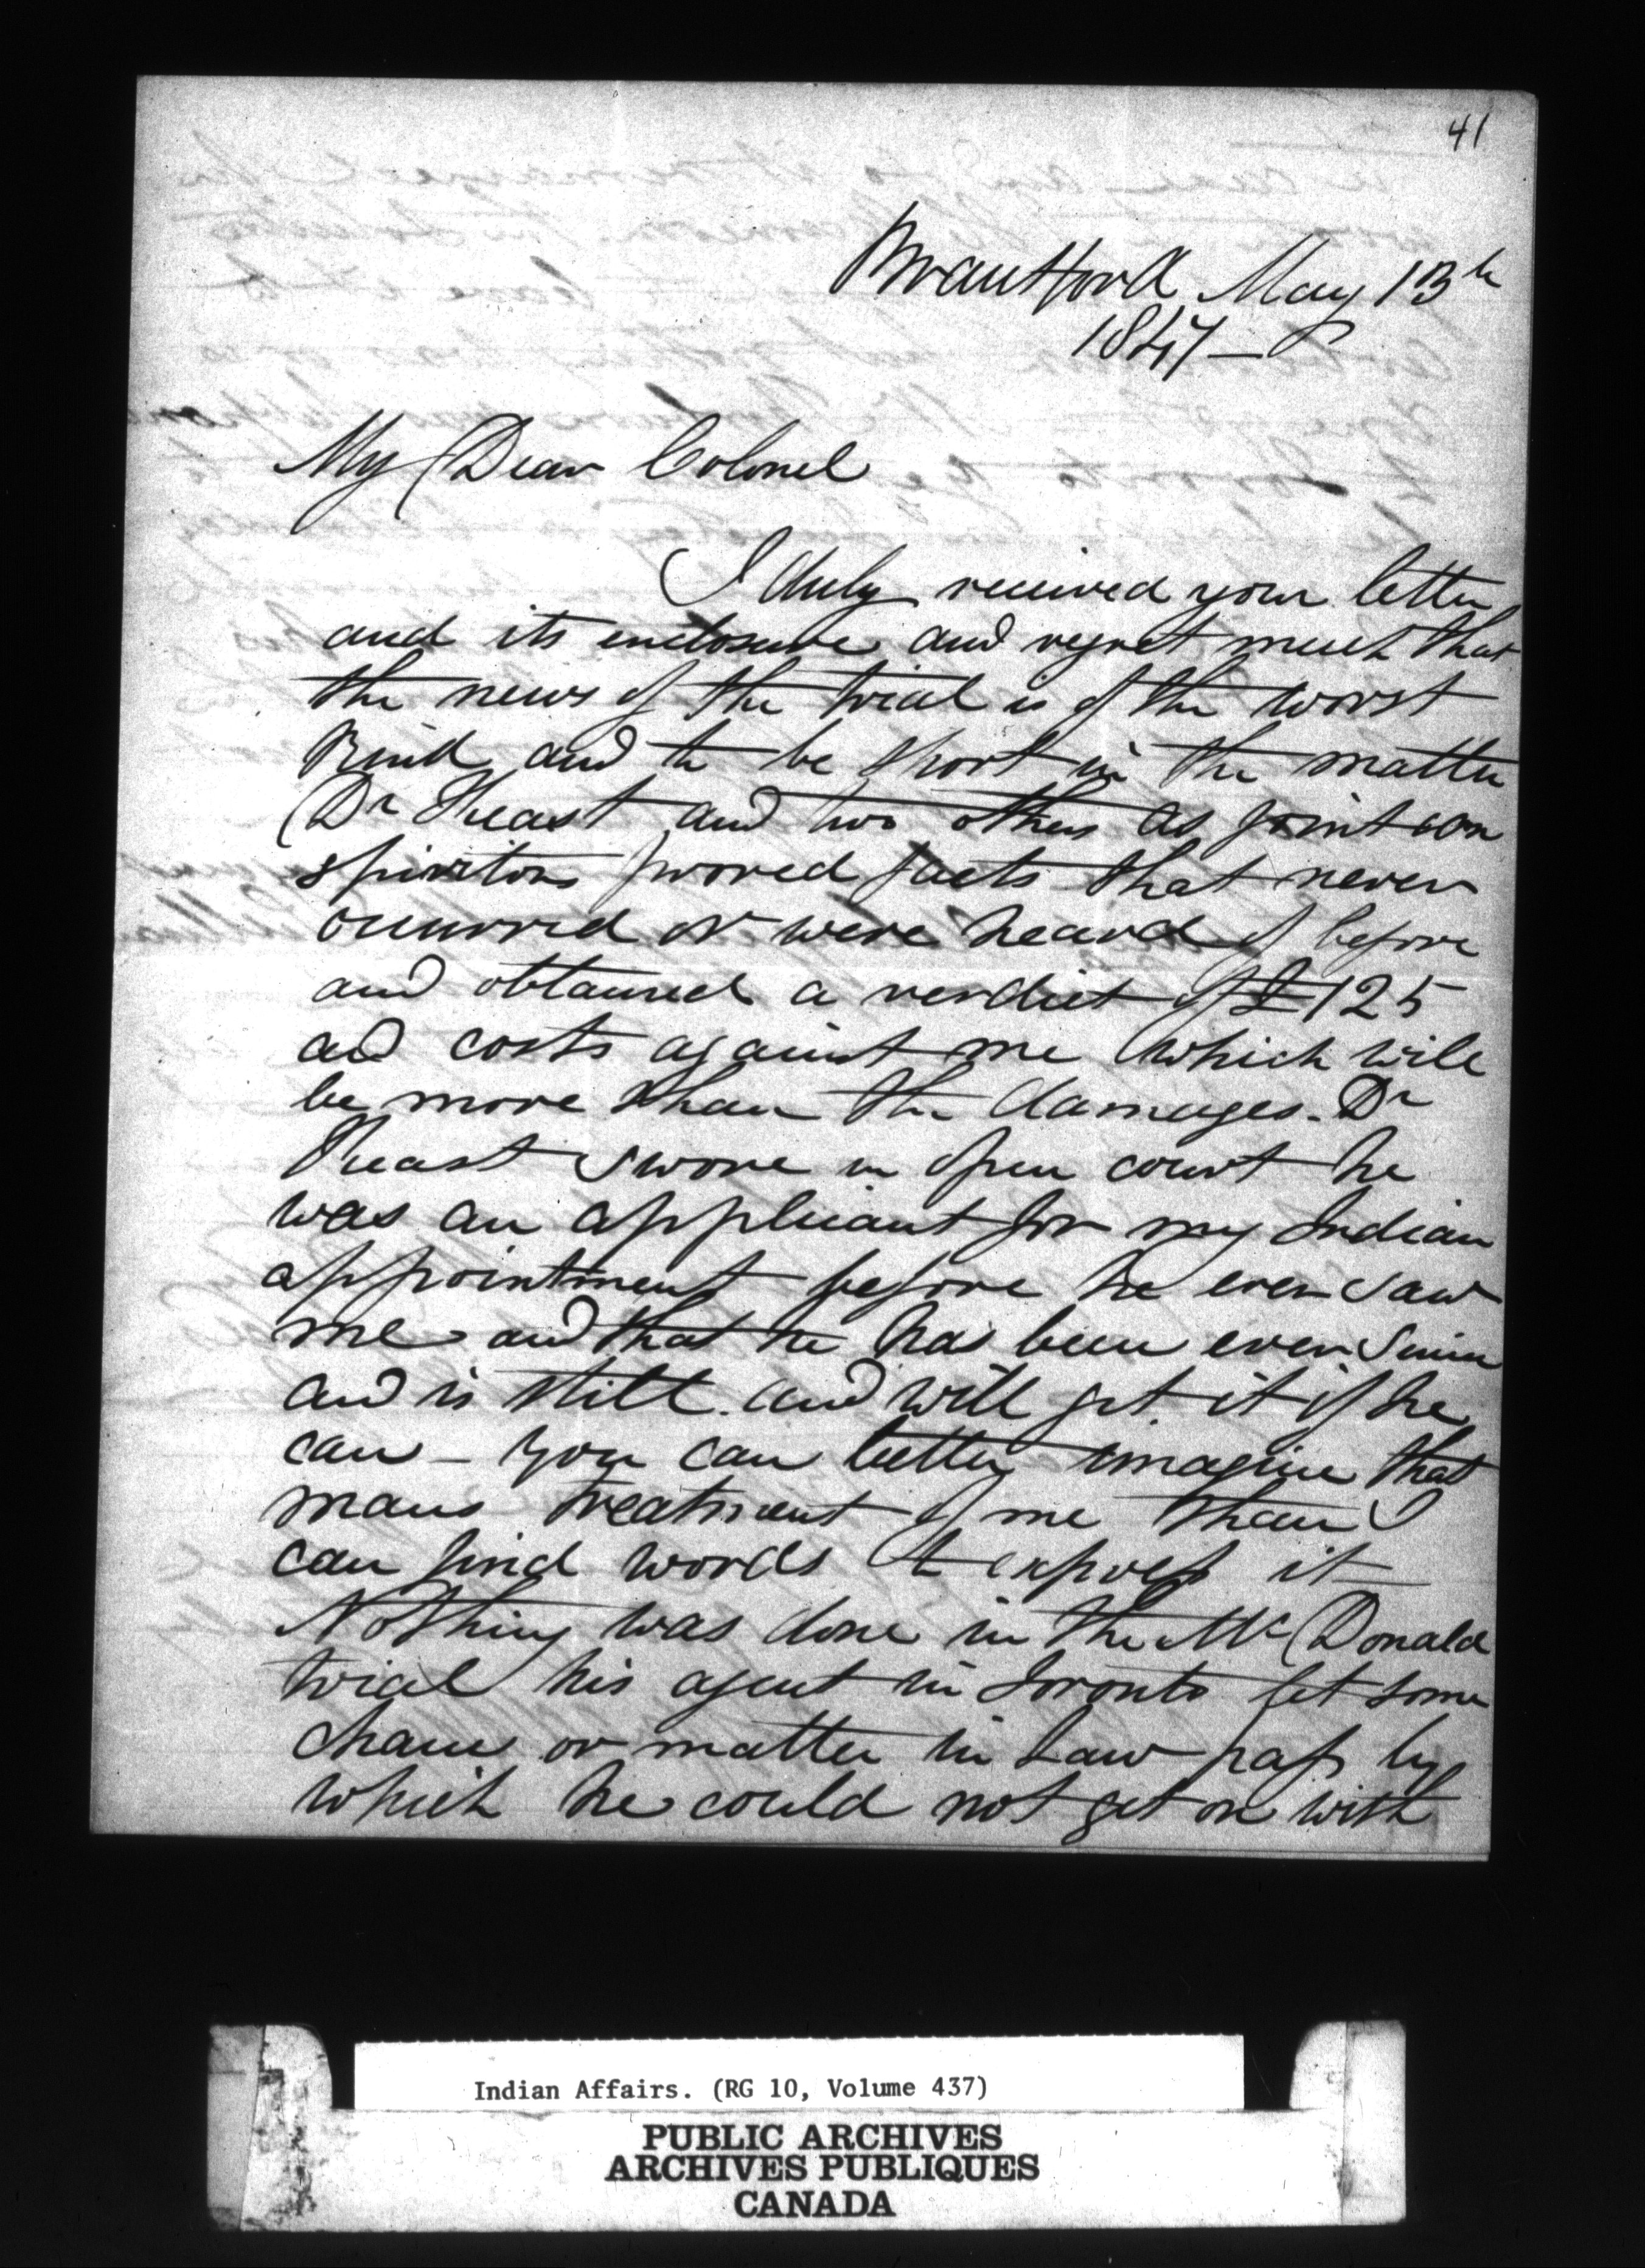 41
Brantford May 13th
1847 —
My Dear Colonel
I duly received your letter
and its enclosure and regret much that
the news of the trial is of the worst
kind and to be short in the matter
Dr and two others as joint con
spiritors proved facts that never
occurred or were heard of before
and obtained a verdict of £125
and costs against me which will
be more than the damages. Dr
swore in open court he
was an applicant for my Indian
appointment before he ever saw
me and that he has been ever since
and is still and will get it if he
can — you can better imagine that
mans treatment of me than I
can find words to express it —
Nothing was done in the Mc Donald
trial his agent in Toronto let some
or matter in Law pass by
which he could not get on with
Indian Affairs. (RG 10, Volume 437)
PUBLIC ARCHIVES
ARCHIVES PUBLIQUES
CANADA